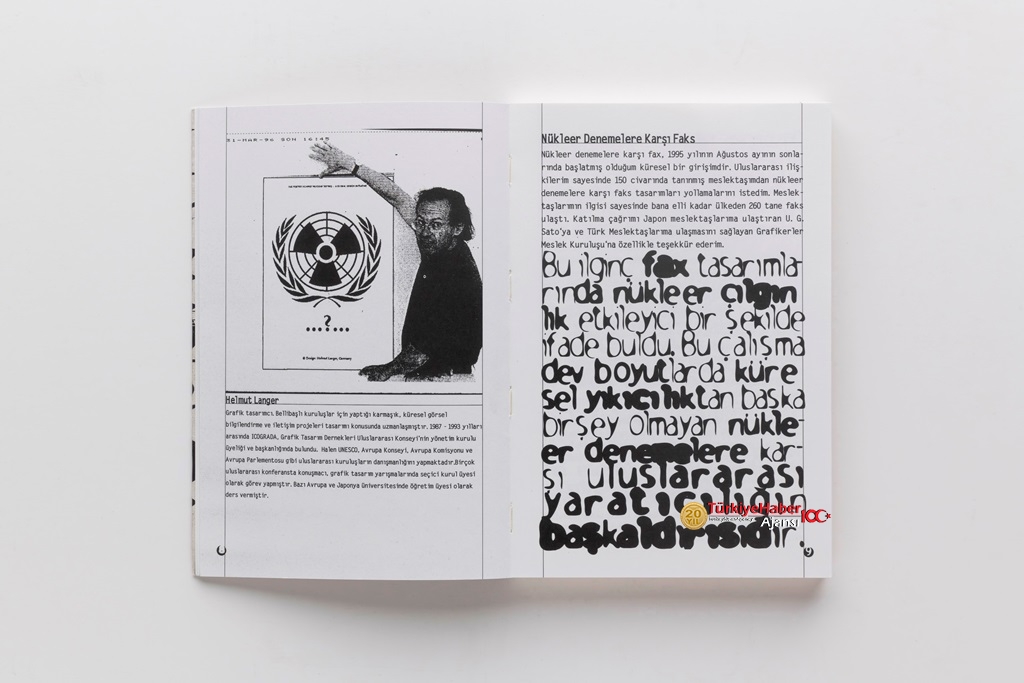 31-MAR-96 SON 16:45
...?...
© Design: Helmut Langer, Germany
Helmut Langer
Grafik tasarımcı. Bellibaşlı kuruluşlar için yaptığı karmaşık, küresel görsel
bilgilendirme ve iletişim projeleri tasarımı konusunda uzmanlaşmıştır. 1987 - 1993 yılları
arasında ICOGRADA, Grafik Tasarım Dernekleri Uluslararası Konseyi'nin yönetim kurulu
üyeliği ve başkanlığında bulundu. Halen UNESCO, Avrupa Konseyi, Avrupa Komisyonu ve
Avrupa Parlementosu gibi uluslararası kuruluşların danışmanlığını yapmaktadır.Birçok
uluslararası konferansta konuşmacı, grafik tasarım yarışmalarında seçici kurul üyesi
olarak görev yapmıştır. Bazı Avrupa ve Japonya üniversitesinde öğretim üyesi olarak
ders vermiştir.
Nükleer Denemelere Karşı Faks
Nükleer denemelere karşı fax, 1995 yılının Ağustos ayının sonla-
rında başlatmış olduğum küresel bir girişimdir. Uluslararası iliş-
kilerim sayesinde 150 civarında tanınmış meslektaşımdan nükleer
denemelere karşı faks tasarımları yollamalarını istedim. Meslek-
taşlarımın ilgisi sayesinde bana elli kadar ülkeden 260 tane faks
ulaştı. Katılma çağrımı Japon meslektaşlarıma ulaştıran U. G.
Sato'ya ve Türk Meslektaşlarıma ulaşmasını sağlayan Grafikerler
Meslek Kuruluşu'na özellikle teşekkür ederim.
Bu ilginç fax tasarımla-
rında nükleer çılgın
lık etkileyici bir şekilde
ifade buldu. Bu çalışma
dev boyutlarda küre
sel yıkıcılıktan başka
birşey olmayan nükle-
er denemelere kar-
şı uluslararası
yaratıcılığın
başkaldırısıdır.
9
20 YIL
TürkiyeHaber
Ajansı
100